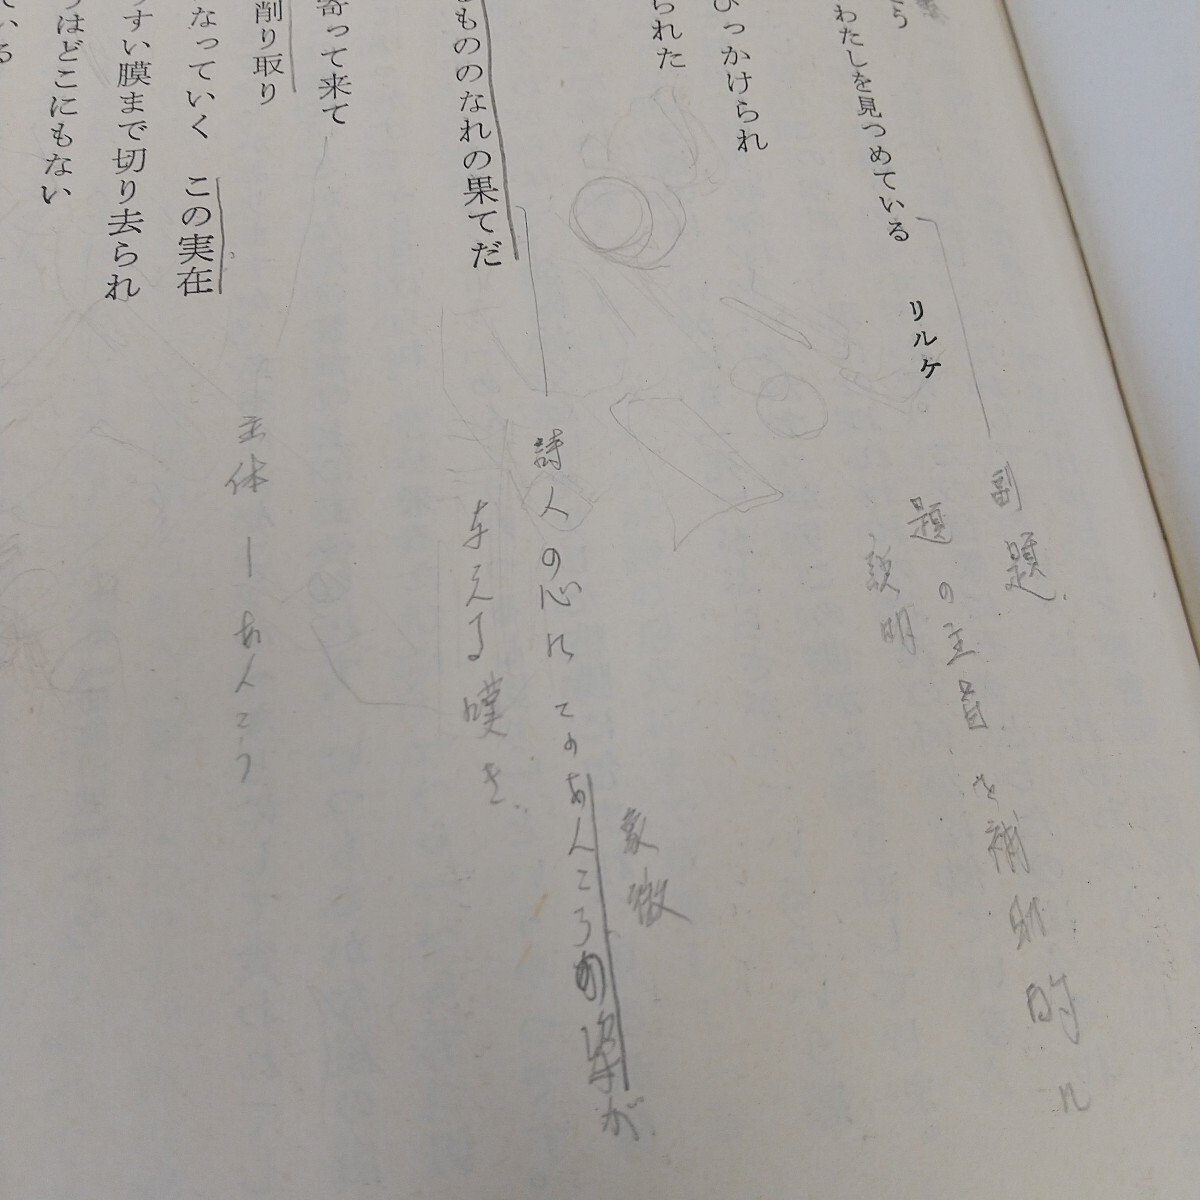 わたしを見つめている
リルケ
ひっかけられ
られた
もののなれの果てだ
寄って来て
削り取り
なっていく　この実在
すい膜まで切り去られ
はどこにもない
いる
副題
題の主旨を補助的に
説明
象徴
詩人の心に　このあんこうの姿が
与える嘆き
主体ーあんこう